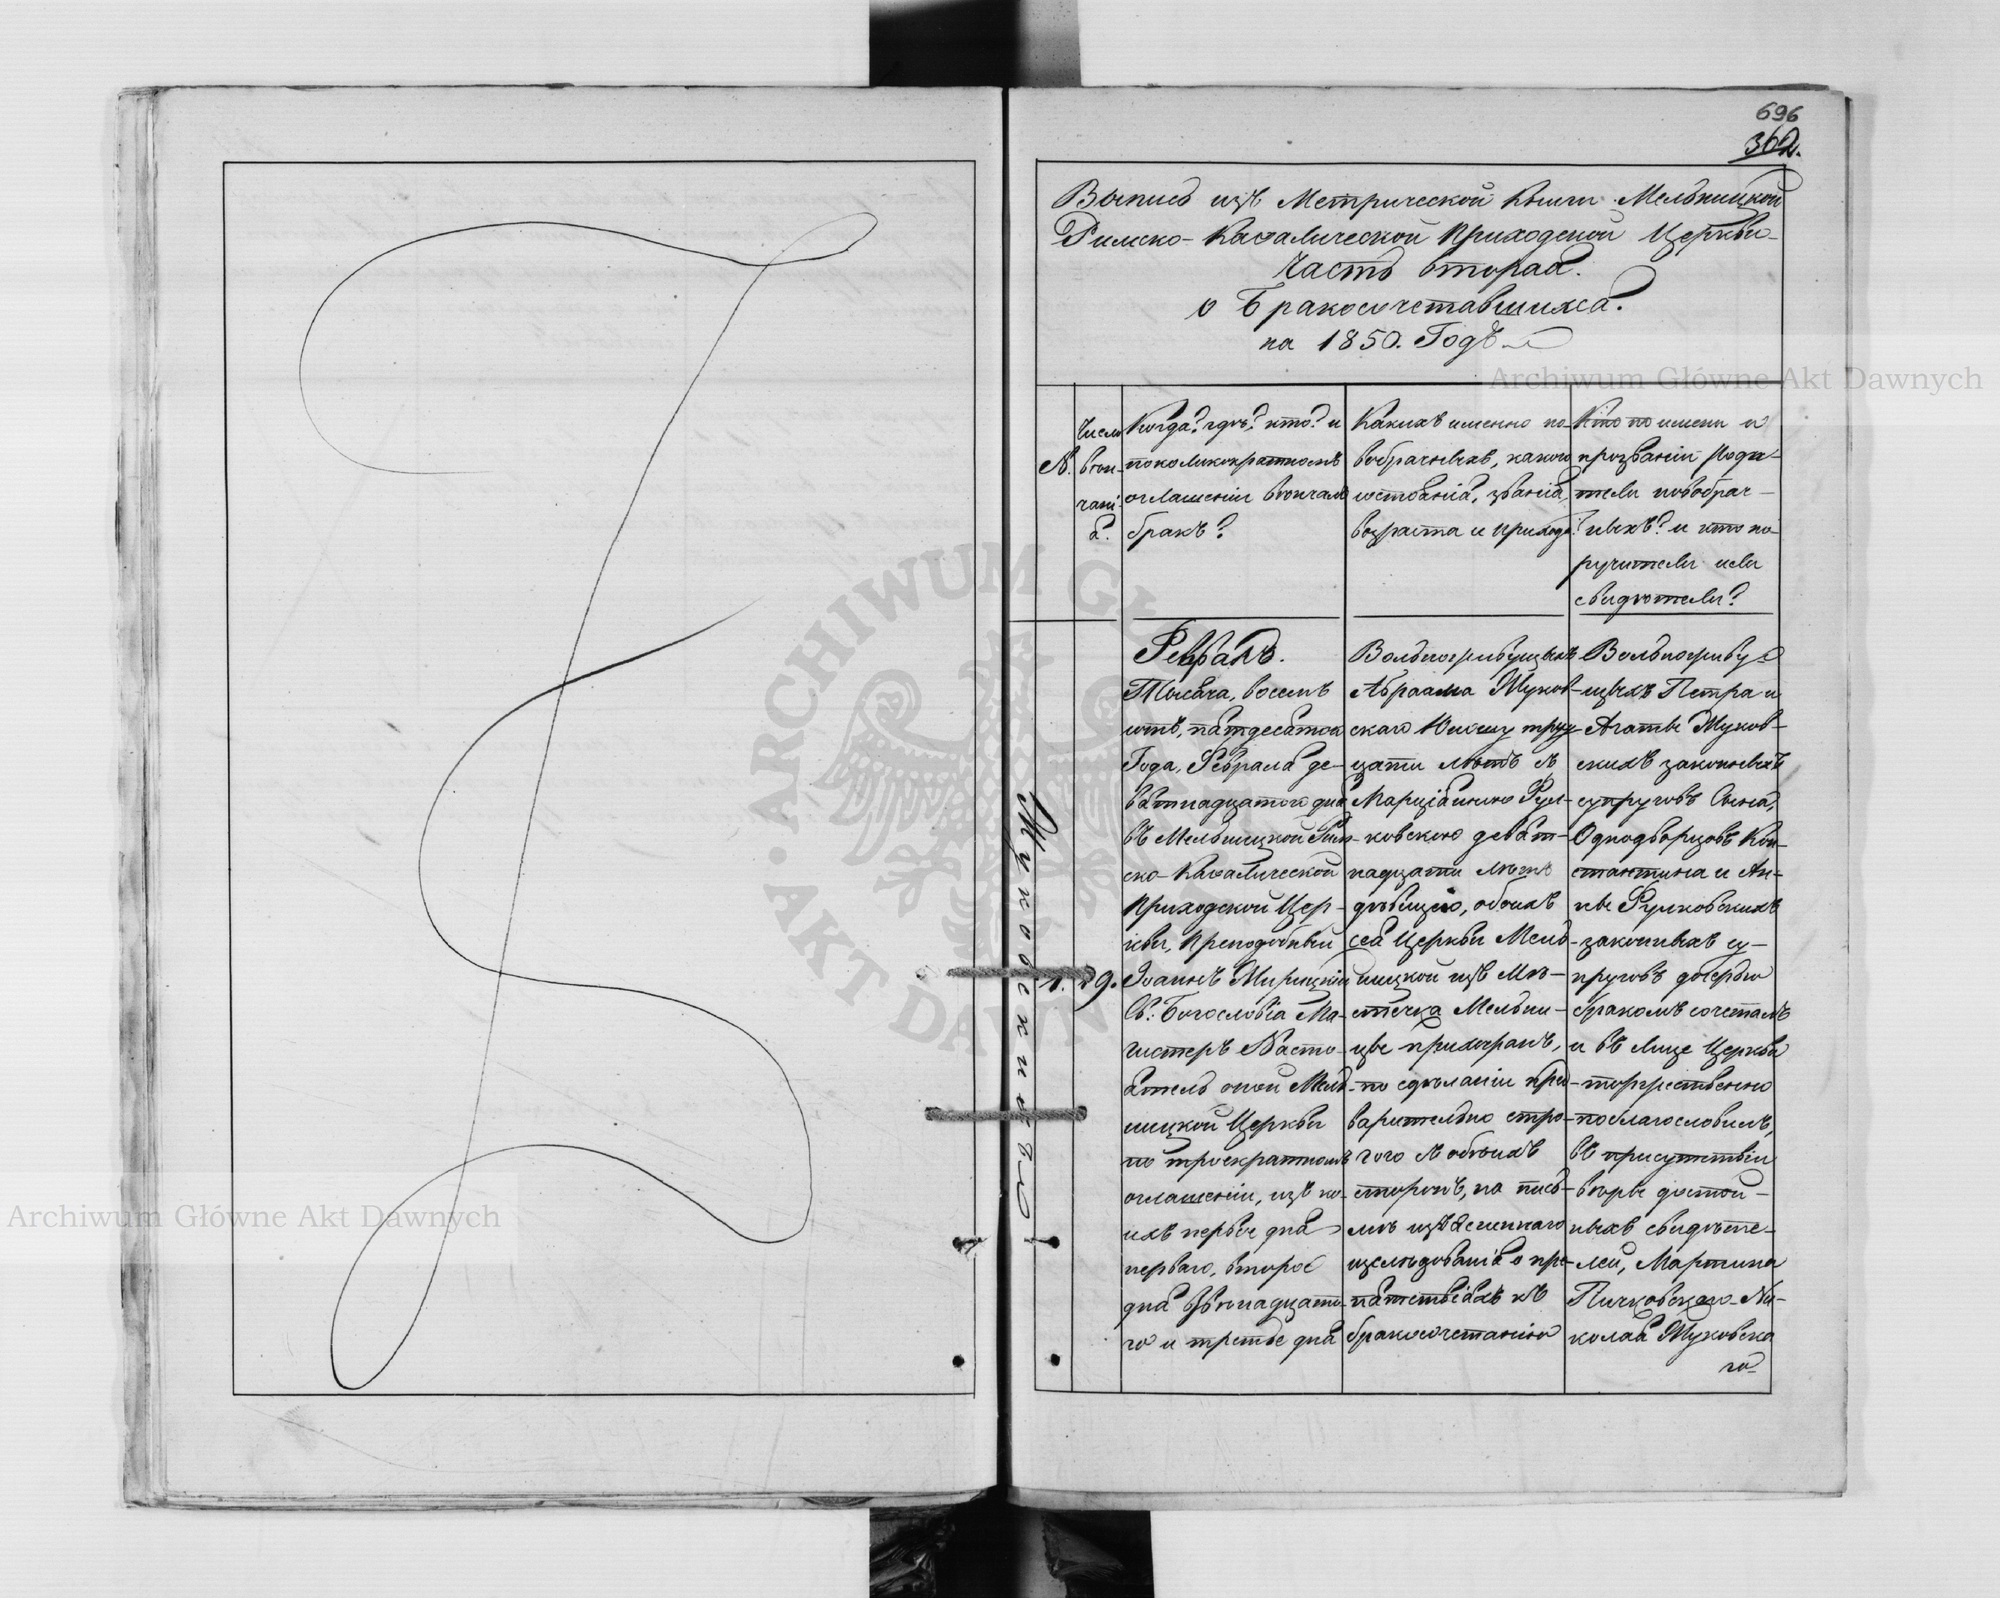 696
362.
Выпись изъ Метрической Книги Мельницкой
Римско-Каѳалической Приходской Церкви
Часть вторая.
о Бракосочетавшихся.
на 1850. Годъ
№.
Число
вѣн-
чані-
я.
Когда? гдѣ? кто? и
по коликократномъ
оглашеніи вѣнчалъ
бракъ?
Какихъ именно но-
вобрачныхъ, какого
состоянія, званія,
возраста и прихода?
Кто по имени и
прозваніи роди-
тели новобрач-
ныхъ? и кто по-
ручители или
свидѣтели?
Жуковскихъ
1.
29.
Февраль.
Тысяча, восемь
сотъ, пятдесятого
Года, Февраля де-
вятнадцатого дня
въ Мельницкой Рим-
ско-Каѳалической
Приходской Цер-
кви, Преподобный
Іоаннъ
Св: Богословія Ма-
гистеръ Насто-
ятель оной Мель-
ницкой Церкви
по троекратномъ
оглашеніи, изъ ко-
ихъ первое дня
перваго, второе
дня
го и третье дня
Вольногживущихъ
Абраама Жуков-
скаго Юношу трид-
цати лѣтъ съ
Марціанною Рул-
ковскою девят-
надцати лѣтъ
дѣвицею, обоихъ
сея Церкви Мель-
ницкой изъ Мѣ-
стечка Мельни-
цы прихожанъ,
по сдѣланіи пред-
варительно стро-
гого съ обоихъ
сторонъ, на пись-
мѣ
изслѣдованія о пре-
пятствіяхъ къ
бракосочетанію
Вольногживу-
щихъ Петра и
Агаты Жуков-
скихъ законныхъ
супруговъ Сына,
Однодворцовъ Кон-
стантина и Ан-
ны Рулковскихъ
законныхъ су-
пруговъ дочерью
бракомъ сочеталъ
и въ Лице Церкви
торжественно
поблагословилъ,
въ присутствіи
вѣры достой-
ныхъ свидѣте-
лей, Мартина
Ни-
колая Жуковска
го
Archiwum Główne Akt Dawnych
Archiwum Główne Akt Dawnych